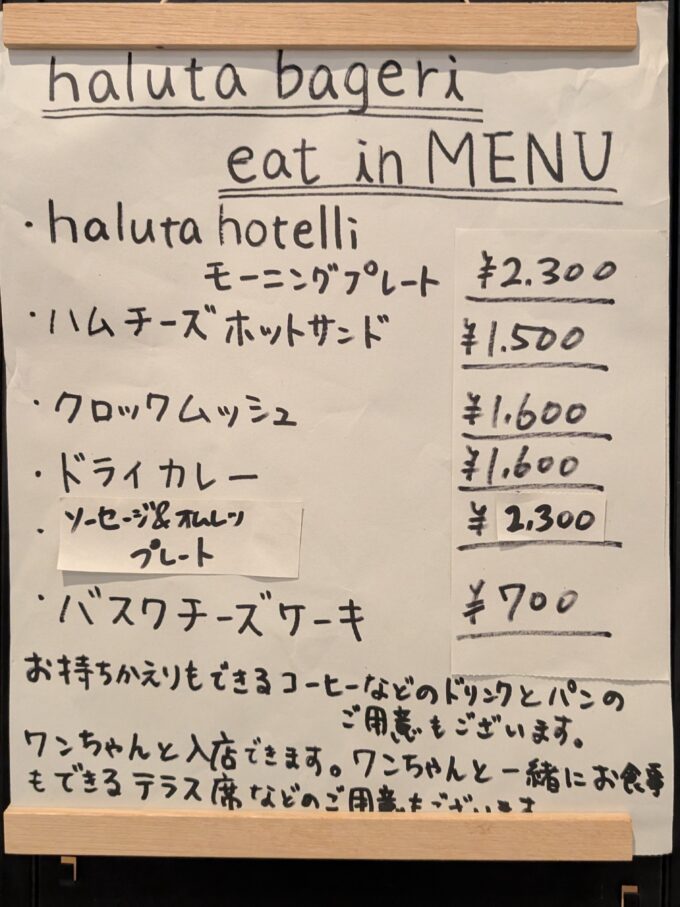 haluta bageri
eat in MENU
・haluta hotelli
モーニングプレート ¥2.300
・ハムチーズホットサンド ¥1.500
・クロックムッシュ ¥1.600
・ドライカレー ¥1.600
・ソーセージ&オムレツ
プレート ¥2.300
・バスクチーズケーキ ¥700
お持ちかえりもできるコーヒーなどのドリンクとパンの
ご用意もございます。
ワンちゃんと入店できます。ワンちゃんと一緒にお食事
もできるテラス席などのご用意もございます